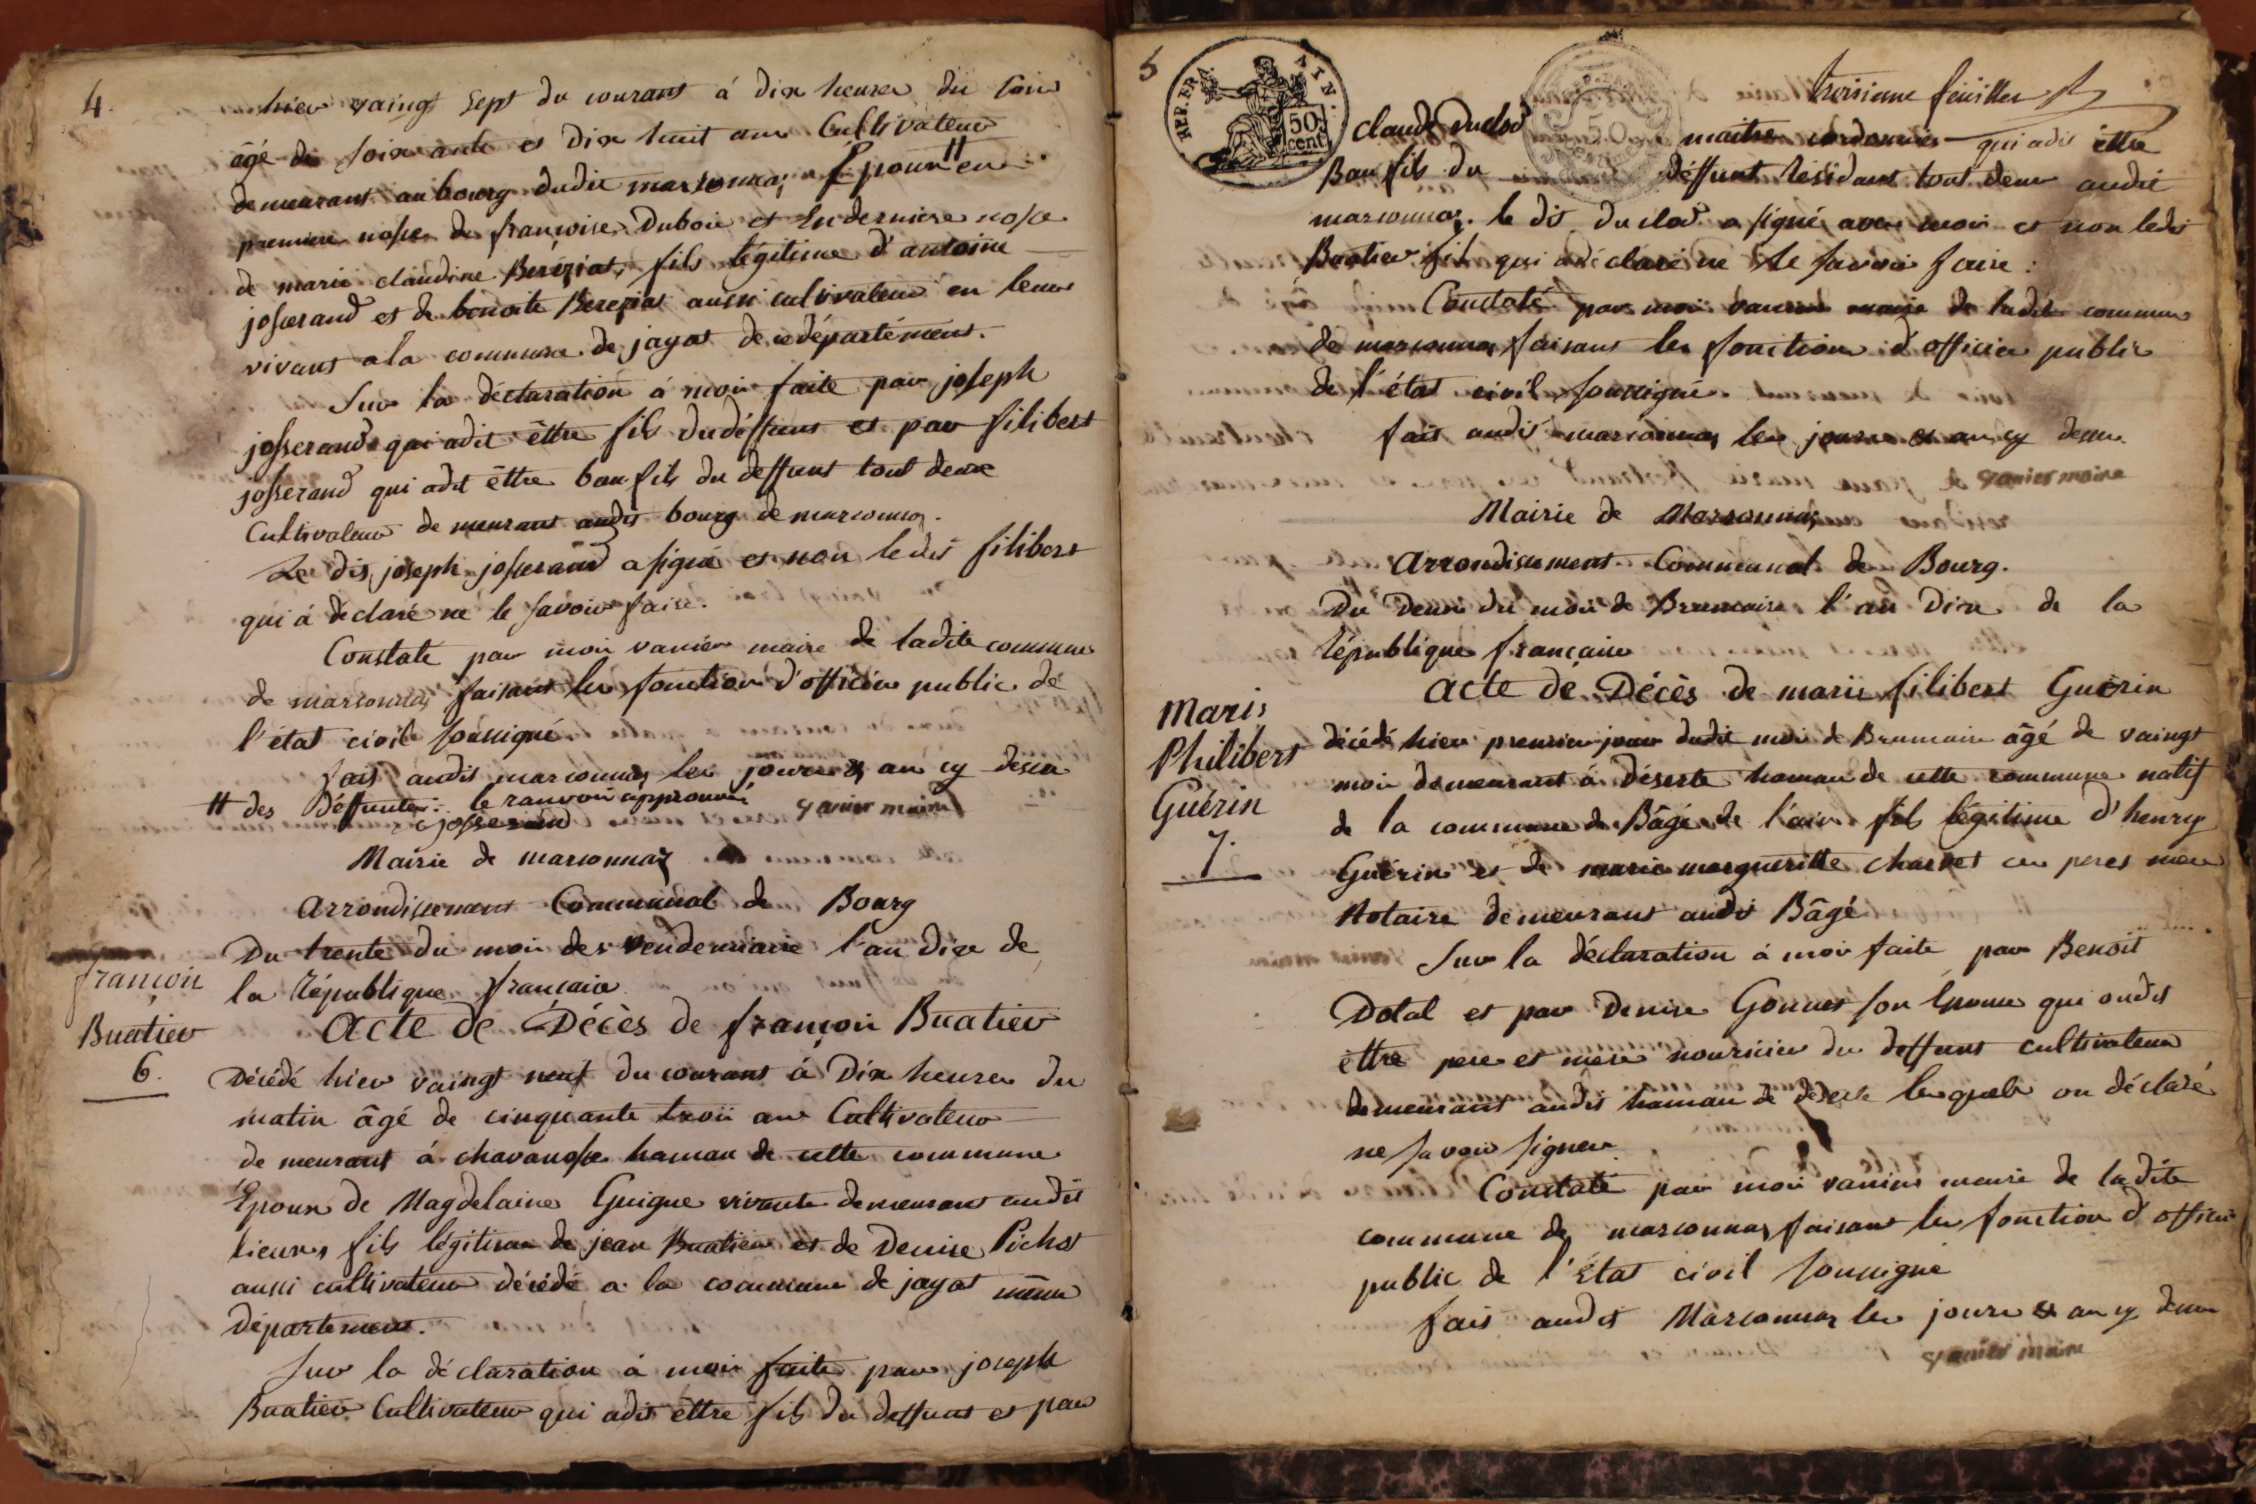 4.
hier vaingt sept du courant á dix heures du soir
âgé de soixante et dix huit ans Cultivateur
demeurant au bourg dudit marsonnas Epoux # en
premiere nosse de françoise Dubois et En derniere nosse
de marie claudine Bereziat, fils légitime d'antoine
josserand et de benoite Bereziat aussi cultivateur en leurs
vivant a la commune de jayat de ce département.
Sur la déclaration á moi faite par joseph
josserand qui adit êttre fils dudéffunt et par filibert
josserand qui adit êttre baufils du deffunt tout deux
Cultivateur demeurant audit bourg de marsonnas.
Le dit joseph josserand a signé et non ledit filibert
qui á déclaré ne le savoir faire.
Constaté par moi vanier maire de ladite commune
de marsonnas faisant les fonction d'officier public de
l'état civil soussigné
fait audit marsonnas les jours & an cy desu
# des Déffuntes. le ranvoi approuvé
josserand vanier maire
Mairie de marsonnas
arrondissement Communal de Bourg
Du trente du moi de vendemiaire l'an dix de
la République francaise
françois
Buatier
6.
acte de Décès de françois Buatier
Décédé hier vaingt neuf du courant á Dix heures du
matin âgé de cinquante trois ans Cultivateur
demeurant á chavanosse hamau de cette commune
Epoux de Magdelaine Guigue vivante demeurant audit
lieux, fils légitime de jean Buatier et de Denise Pichot
aussi cultivateur décédé a la commune de jayat même
département.
Sur la déclaration á moi faite par joseph
Buatier Cultivateur qui adit êttre fils du deffunt et par
5
BER.ERA. AIN.
50 cent
troisieme feuillet
claude duclos maitre cordonnier qui adit êttre
Baufils du déffunt Résidant tout deux audit
marsonnas. le dit duclos a signé avec moi et non ledit
Buatier fils qui a déclaré ne le savoir faire.
Constaté par moi vanier maire de ladite commune
de marsonnas faisant les fonction d'officier public
de l'état civil soussigné.
fait audit marsonnas les jours & an cy desu
vanier maire
Mairie de Marsonnas
arrondissement Communal de Bourg.
Du Deux du moi de Brumaire l'an Dix de la
République francaise
Marie
Philibert
Guérin
7.
acte de Décès de marie filibert Guérin
décédé hier premier jour dudit moi de Brumaire âgé de vaingt
moi demeurant á déserte hamau de cette commune natif
de la commune de Bâgé de l'ain fils légitime d'henry
Guérin et de marie margueritte charvet ces peres mere
Notaire demeurant audit Bâgé
Sur la déclaration á moi faite par Benoit
Dotal et par Denise Gonnet son Epouse qui ondit
êttre pere et mere nouricier du deffunt cultivateur
demeurant audit hamau de déserte lesquels on déclaré
ne savoir signer.
Constaté par moi vanier maire de ladite
commune de marsonnas faisant les fonction d'officier
public de l'Etat civil soussigné
fait audit Marsonnas les jours & an cy desu
vanier maire